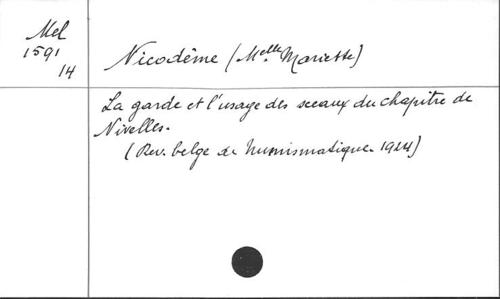 Mel
1591
14
Nicodème (Melle. Mariette)
La garde et l'usage des sceaux du chapitre de
Nivelles.
(Rev. belge de Numismatique. 1924)